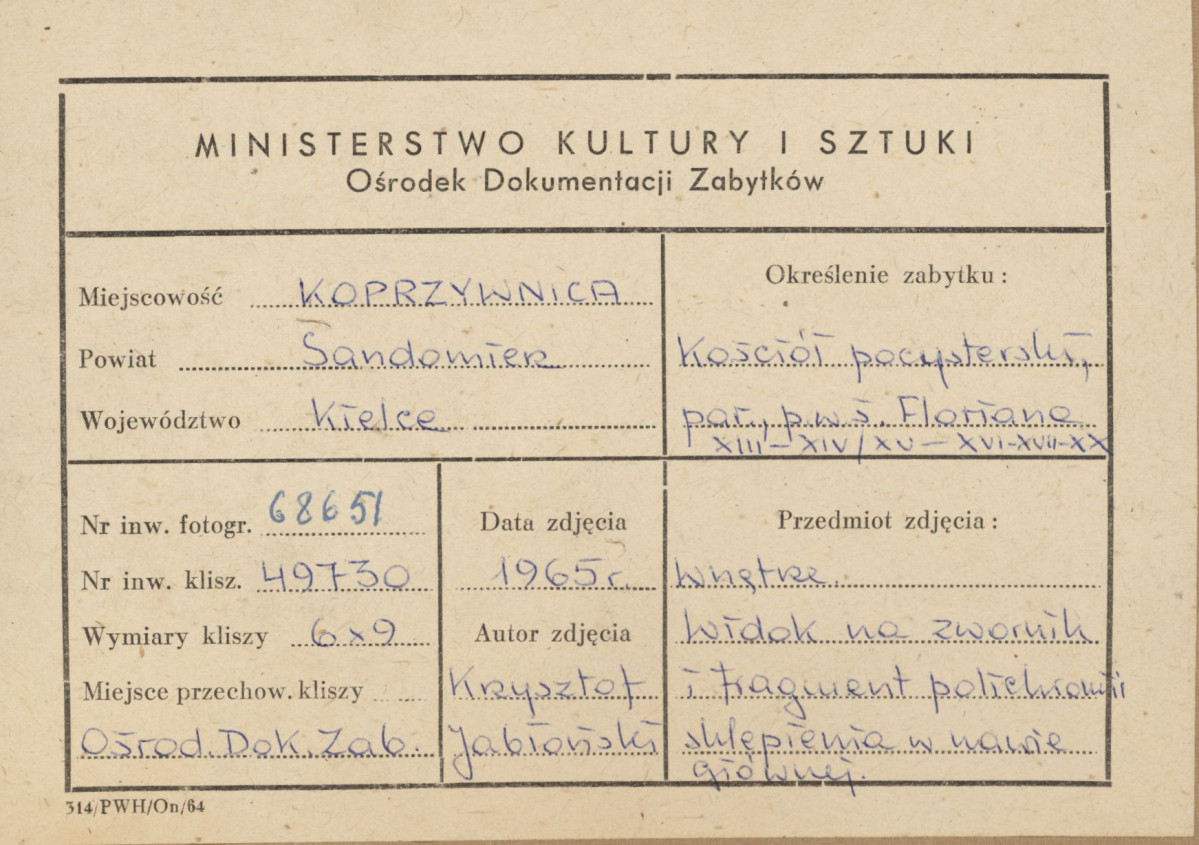 MINISTERSTWO KULTURY I SZTUKI
Ośrodek Dokumentacji Zabytków
Miejscowość KOPRZYWNICA
Powiat Sandomierz
Województwo Kielce
Określenie zabytku:
Kościół pocysterski,
par., p.w. ś. Floriana
XIII – XIV/XV – XVI-XVII-XX
Nr inw. fotogr. 68651
Nr inw. klisz. 49730
Wymiary kliszy 6x9
Miejsce przechow. kliszy
Ośrod. Dok. Zab.
Data zdjęcia
1965 r.
Autor zdjęcia
Krzysztof
Jabłoński
Przedmiot zdjęcia:
Wnętrze.
Widok na zwornik
i fragment polichromii
sklepienia w nawie
głównej.
314/PWH/On/64